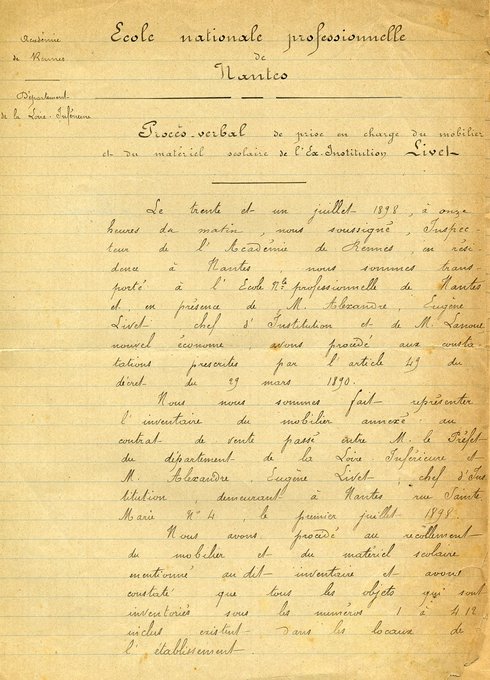 Académie
de Rennes
Département
de la Loire-Inférieure
Ecole nationale professionnelle
de
Nantes
Procès-verbal de prise en charge du mobilier
et du matériel scolaire de l'Ex-Institution Livet
Le trente et un juillet 1898, à onze
heures du matin, nous soussigné, Inspec-
teur de l'Académie de Rennes, en rési-
dence à Nantes, nous sommes trans-
porté à l'Ecole Nle professionnelle de Nantes
et, en présence de M. Alexandre, Eugène
Livet chef d'Institution et de M. Lanoue
nouvel économe, avons procédé aux consta-
tations prescrites par l'article 49 du
décret du 29 mars 1890.
Nous nous sommes fait représenter
l'inventaire du mobilier annexé au
contrat de vente passé entre M. le Préfet
du département de la Loire Inférieure et
M. Alexandre, Eugène Livet, chef d'Ins
titution, demeurant à Nantes rue Sainte
Marie N° 4, le premier juillet 1898.
Nous avons procédé au récollement
du mobilier et du matériel scolaire
mentionné au dit inventaire et avons
constaté que tous les objets qui sont
inventoriés sous les numéros 1 à 412
inclus existent dans les locaux de
l'établissement.